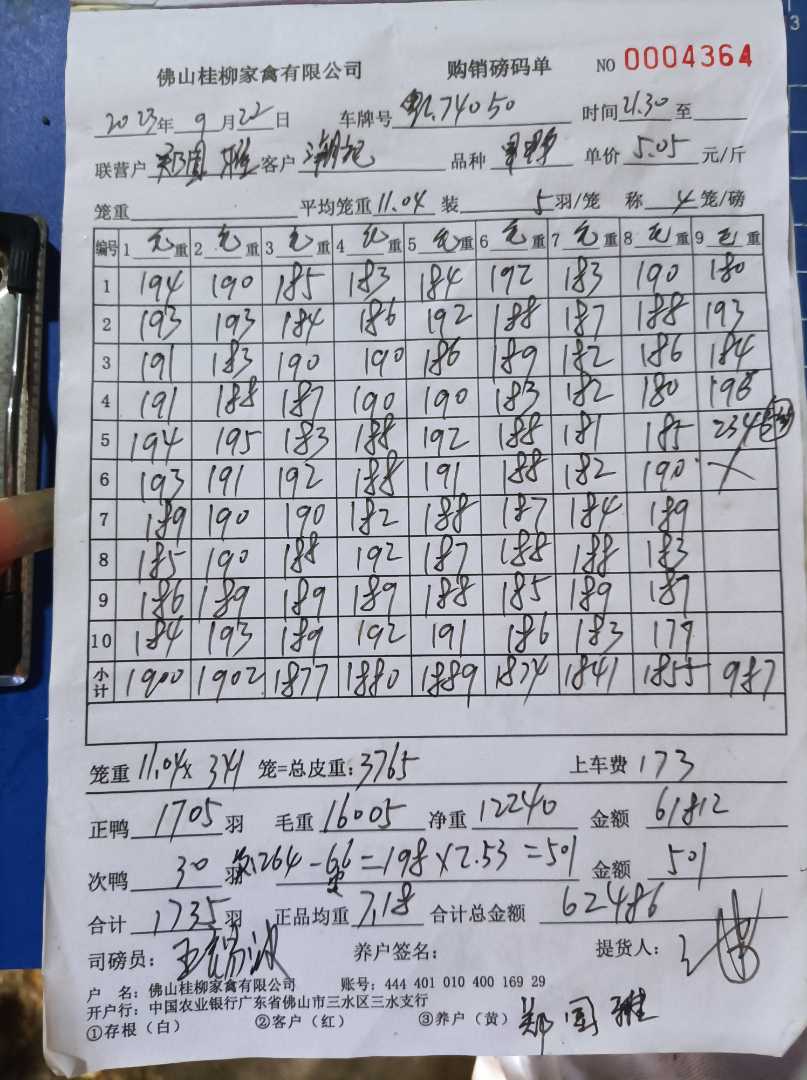 佛山桂柳家禽有限公司 购销磅码单 NO 0004364
2023年 9月22日 车牌号 74050 时间 21.30 至
联营户 郑国雅 客户 品种 单价 5.05 元/斤
笼重 平均笼重 11.04 装 5 羽/笼 称 4 笼/磅
编号 1 毛重 2 毛重 3 毛重 4 毛重 5 毛重 6 毛重 7 毛重 8 毛重 9 毛重
1 194 190 185 183 184 192 183 190 180
2 193 193 184 186 192 188 187 188 193
3 191 183 190 190 186 189 182 186 184
4 191 188 187 190 190 183 182 180 196
5 194 195 183 188 192 188 181 185 234
6 193 191 192 188 191 188 182 190
7 189 190 190 182 188 187 184 189
8 185 190 188 192 187 188 188 183
9 186 189 189 189 188 185 189 187
10 184 193 189 192 191 186 183 177
小计 1900 1902 1877 1880 1889 1874 1841 1855 987
笼重 11.04× 341 笼=总皮重:3765 上车费 173
正鸭 1705 羽 毛重 16005 净重 12240 金额 61812
次鸭 30 羽 264-66=198×2.53=501 金额 501
合计 1735 羽 正品均重 7.18 合计总金额 62486
司磅员: 养户签名: 提货人:
户 名: 佛山桂柳家禽有限公司 账号: 444 401 010 400 169 29
开户行: 中国农业银行广东省佛山市三水区三水支行
①存根(白) ②客户(红) ③养户(黄) 郑国雅